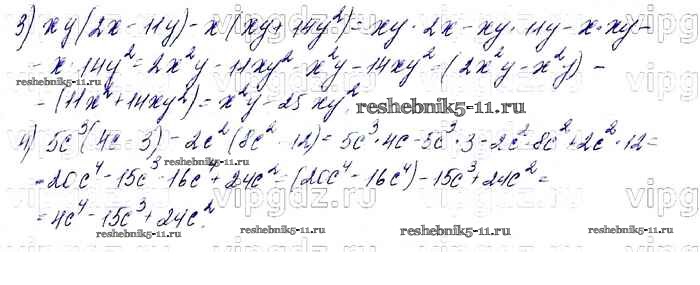 3) xy(2x - 11y) - x(xy + 14y²) = xy · 2x - xy · 11y - x · xy -
- x · 14y² = 2x²y - 11xy² - x²y - 14xy² = (2x²y - x²y) -
- (11x² + 14xy²) = x²y - 25xy².
reshebnik5-11.ru
4) 5c³(4c - 3) - 2c²(8c² - 12) = 5c³ · 4c - 5c³ · 3 - 2c² · 8c² + 2c² · 12 =
= 20c⁴ - 15c³ - 16c⁴ + 24c² = (20c⁴ - 16c⁴) - 15c³ + 24c² =
= 4c⁴ - 15c³ + 24c².
reshebnik5-11.ru
reshebnik5-11.ru
reshebnik5-11.ru